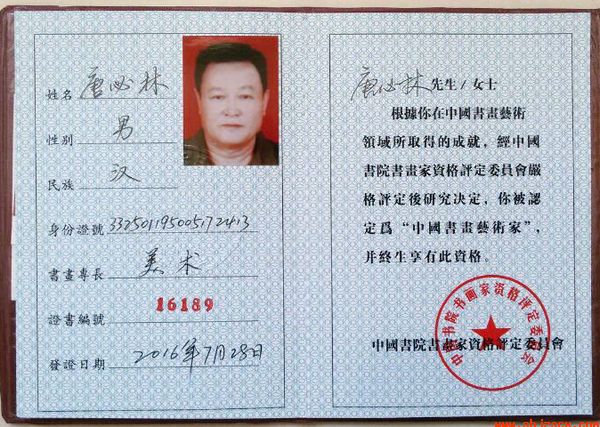 姓名 唐必林
性别 男
民族 汉
身份證號 332501195005172413
書畫專長 美术
證書編號 16189
發證日期 2016年7月28日
唐必林 先生/女士
根據你在中國書畫藝術
領域所取得的成就，經中國
書院書畫家資格評定委員會嚴
格評定後研究决定，你被認
定爲“中國書畫藝術家”，
并終生享有此資格。
中國書院書畫家資格評定委員會
中国书院书画家资格评定委员会